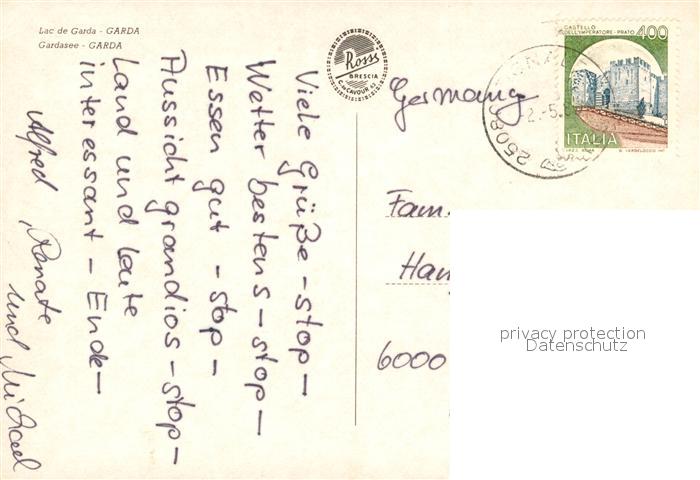 Lac de Garda - GARDA
Gardasee - GARDA
Viele Grüße - stop -
Wetter bestens - stop -
Essen gut - stop -
Aussicht grandios - stop -
Land und Leute
interessant - Ende -
Alfred, Renate
und Michael
Ross
BRESCIA
C. so CAVOUR 43
Germany
CASTELLO
DELL'IMPERATORE - PRATO
400
ITALIA
Fam.
Han
6000
privacy protection
Datenschutz